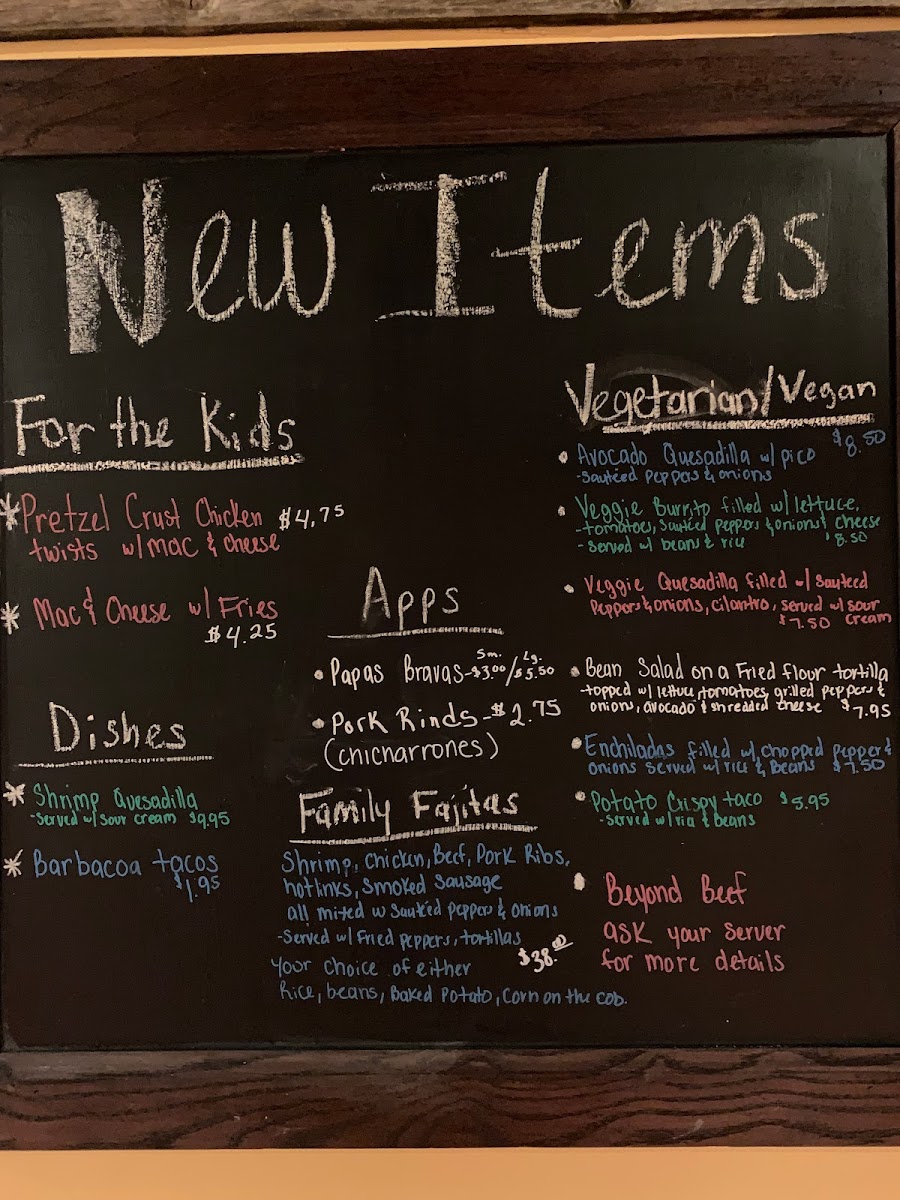 New Items
For the Kids
*Pretzel Crust Chicken $4.75
twists w/mac & cheese
* Mac & Cheese w/ Fries
$4.25
Dishes
* Shrimp Quesadilla
-Served w/ sour cream $9.95
* Barbacoa tacos
$1.95
Apps
Sm. Lg.
• Papas Bravas-$3.00/$5.50
• Pork Rinds-$2.75
(chicharrones)
Family Fajitas
Shrimp, Chicken, Beef, Pork Ribs,
hotlinks, Smoked Sausage
all mixed w Sautéed peppers & onions
-Served w/ Fried peppers, tortillas
$38.00
your choice of either
Rice, beans, Baked Potato, Corn on the cob.
Vegetarian/Vegan
• Avocado Quesadilla w/ pico $8.50
-Sautéed peppers & onions
• Veggie Burrito filled w/ lettuce,
-tomatoes, Sautéed peppers & onions & cheese
-Served w/ beans & rice $8.50
• Veggie Quesadilla filled w/ Sauteed
Peppers & onions, cilantro, served w/ sour
$7.50 cream
• Bean Salad on a Fried flour tortilla
-topped w/ lettuce, tomatoes, grilled peppers &
onions, avocado & shredded cheese $7.95
• Enchiladas filled w/ chopped pepper &
onions served w/ rice & Beans $7.50
• Potato Crispy taco $5.95
-Served w/ria & beans
• Beyond Beef
ask your server
for more details